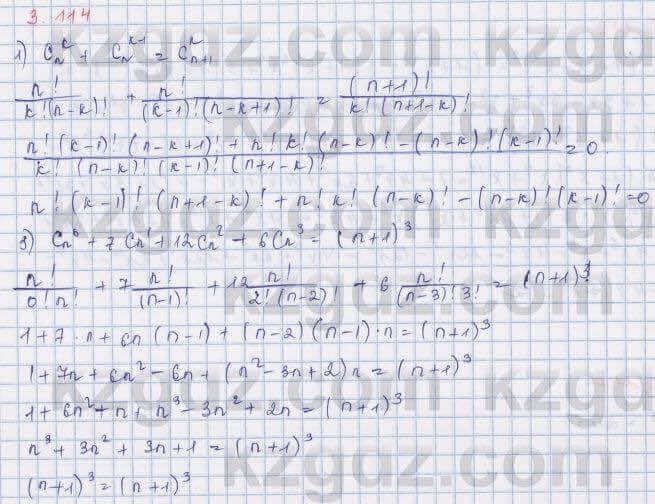 3.114
1) C_n^k + C_n^{k-1} = C_{n+1}^k
n!/(k!(n-k)!) + n!/((k-1)!(n-k+1)!) = (n+1)!/(k!(n+1-k)!)
(n!(k-1)!(n-k+1)! + n!k!(n-k)! - (n-k)!(k-1)!)/(k!(n-k)!(k-1)!(n+1-k)!) = 0
n!(k-1)!(n+1-k)! + n!k!(n-k)! - (n-k)!(k-1)! = 0
3) C_n^0 + 7C_n^1 + 12C_n^2 + 6C_n^3 = (n+1)^3
n!/(0!n!) + 7 n!/(n-1)! + 12 n!/(2!(n-2)!) + 6 n!/((n-3)!3!) = (n+1)^3
1+7·n+6n(n-1)+(n-2)(n-1)·n=(n+1)^3
1+7n+6n^2-6n+(n^2-3n+2)n=(n+1)^3
1+6n^2+n+n^3-3n^2+2n=(n+1)^3
n^3+3n^2+3n+1=(n+1)^3
(n+1)^3=(n+1)^3
kzgdz.com